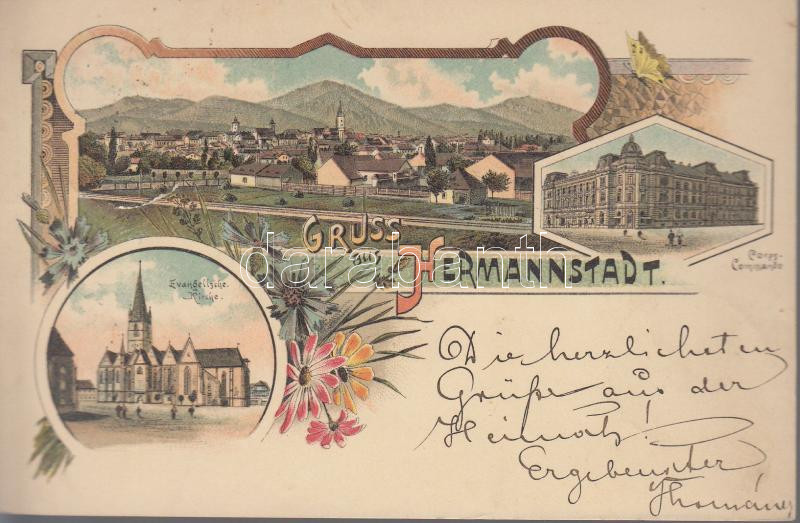 GRUSS
aus
HERMANNSTADT.
Corps-
Commando
Evangelische
Kirche.
darabanth.com
Die herzlichsten
Grüße aus der
Heimat!
Ergebenster